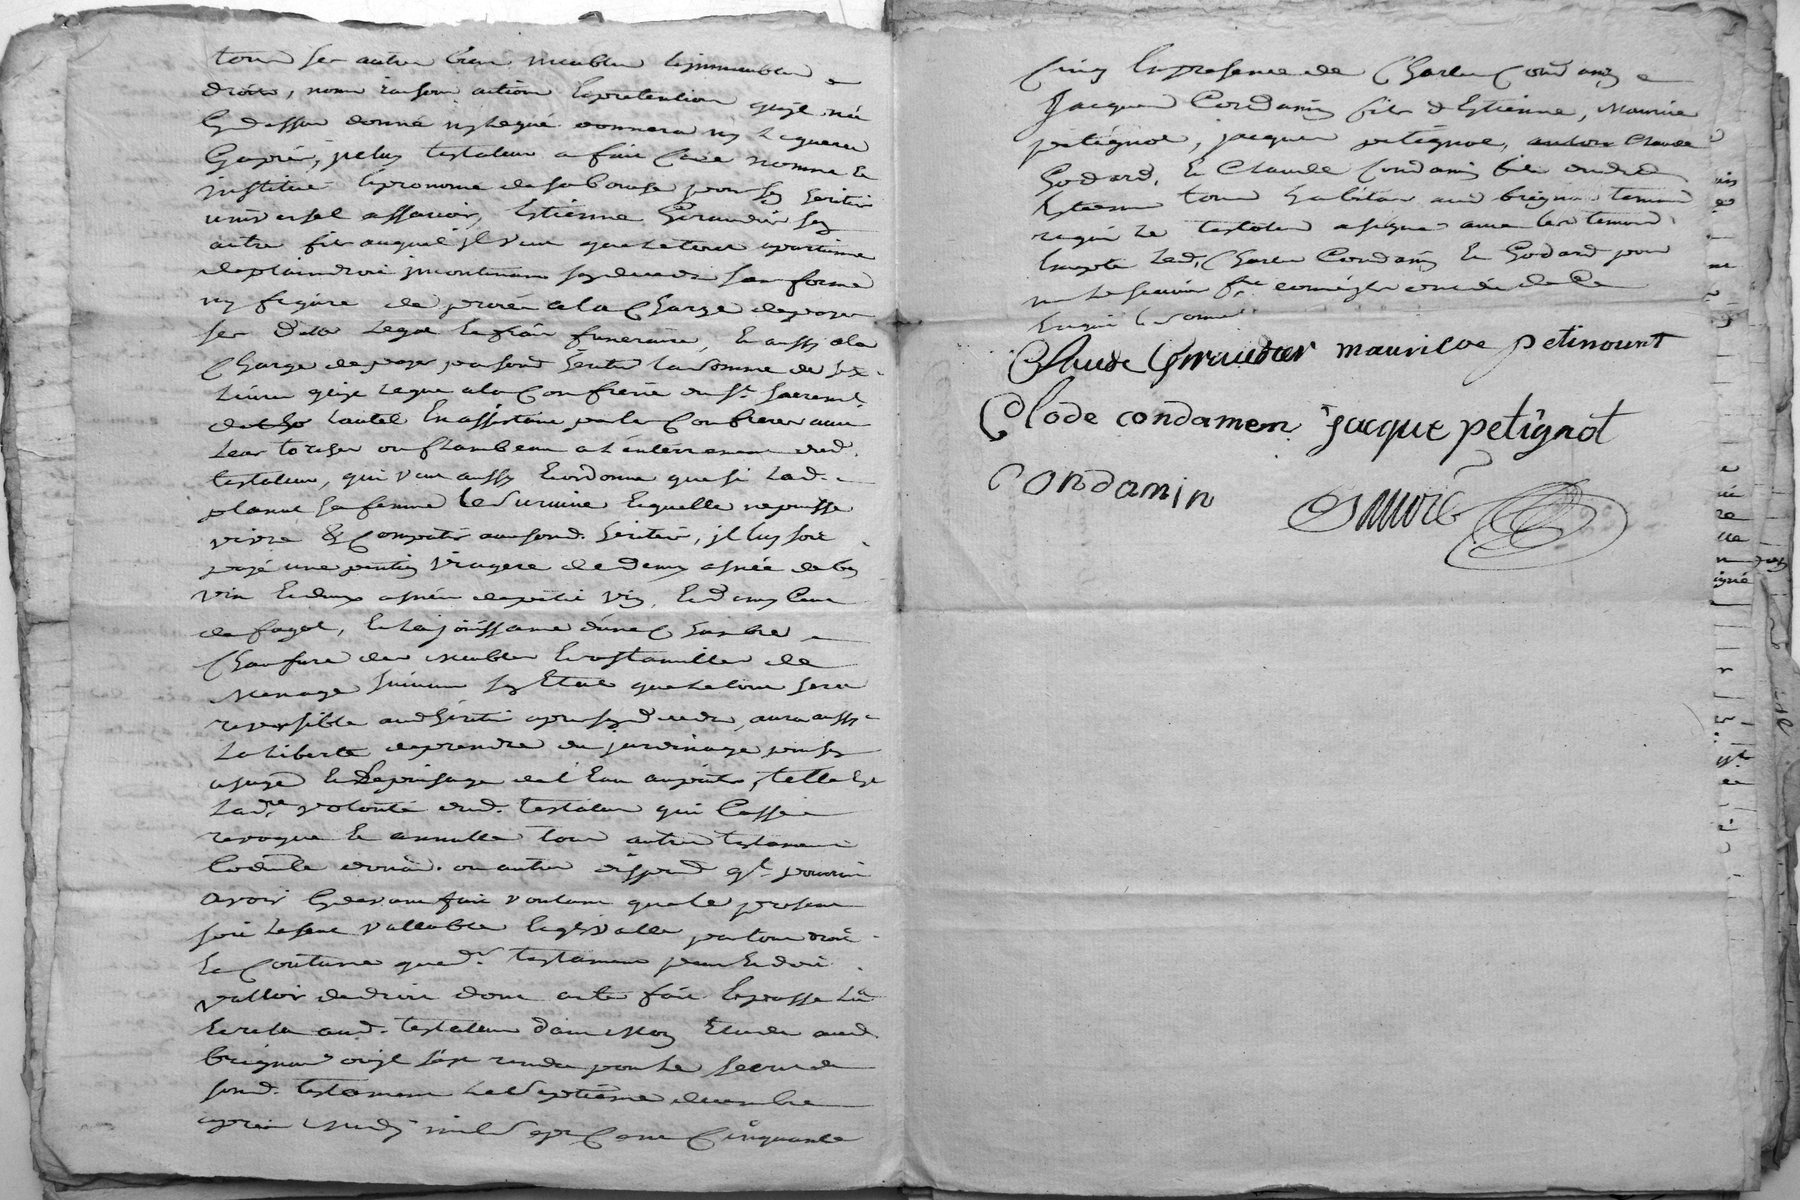 tous ses autres biens meubles & immeubles
droits, noms raisons actions & pretentions qu'jl n'a
cy dessus donné ny legué donnera ny leguera
cy apres, jceluy testateur a fait cree nomme &
institue & prononcé de sa bouche pour son heritier
universel assavoir, Estienne Giraudier son
autre fils auquel jl veut que le tout apartienne
de plain droit jncontinent son deceds sans forme
ny figure de procés a la charge de payer
ses dettes legat & frais funeraires, & aussy a la
charge de payer par sond. heritier la somme de six
livres qu'jl legue a la confrerie du St. Sacremt.
de l'autel en assistant par les confreres avec
leur torches ou flambeaux a l'enterrement dud.
testateur, qui veut aussy & ordonne que si lad.
sa femme le survive & quelle ne puisse
vivre & compatir avec sond. heritier, jl luy soit
payé une pention viagere de deux asnée de bon
vin & deux asnée de petit vin, & d'un cent
de fagot, & la joüissance d'une chambre
chaufure des meubles & ustancilles de
menage suivant son Etat que le tout sera
reversible aud. heritier apres son deceds, aura aussy
la liberté de prendre du jardinage pour son
usage & le puisage de l'Eau au puits, telle est
la dre. volonté dud. testateur qui casse
revoque & annulle tous autres testament
codicille donaõn. ou autres dispõns qu'jl pourroit
avoir cy devant fait voulant que le present
soit le seul vallable & qu'jl valle par tout droit
& coutume que dr. testament peut & doit
valloir de droit dont acte fait & passé leu
& releu aud. testateur dans mon Etude aud.
brignais ou jl s'est rendu pour le secret de
sond. testament le septième decembre
apres midy mil sept cent cinquante
cinq en presence de Charles Condamin
Jacques Condamin fils d'Estienne, Maurice
petignot, jacques petignot, Claude
Godard, & Claude Condamin fils dud.
Estienne tous habitans aud. brignais temoins
requis le testateur a signé avec les temoins
excepté led. Charles Condamin & Godard pour
ne le scavoir fre. comme jls ont dit de ce
enquis & sommés
Claude Giraudier maurisse petinount
Clode condamen jacque petignot
condamin